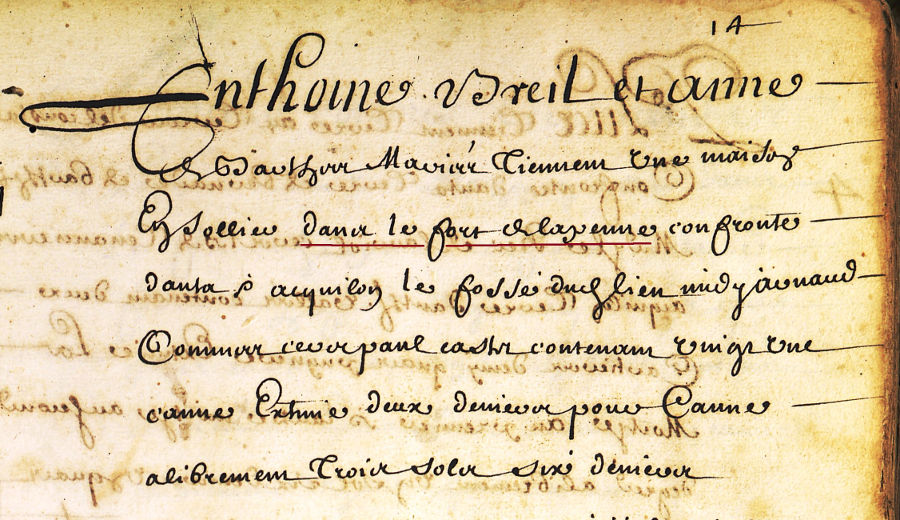 14
Anthoine Vreil et anne
Mariés Tiennent une maison
Et sollier dans le fort de lapenne confronte
dauta acquilon le fossé dud lieu midy arnaud
cers paul contenant vingt une
canne Estimé deux deniers pour Canne
alibrement Trois sols six deniers